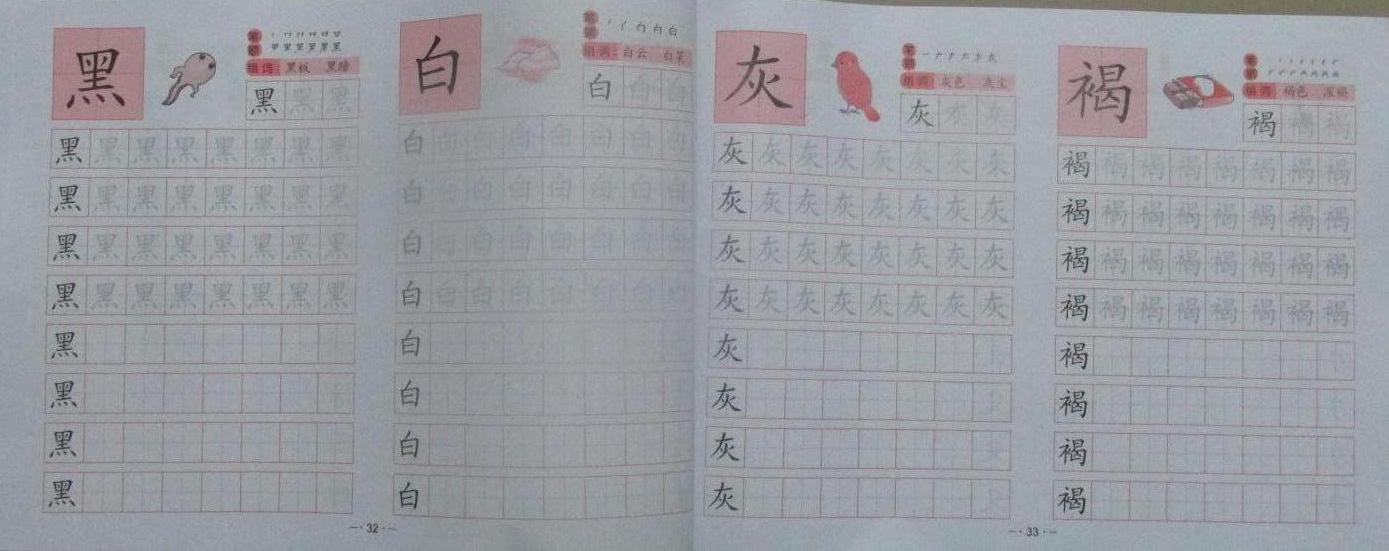 黑
笔顺
组词 黑板 黑暗
黑 黑 黑
黑 黑 黑 黑 黑 黑 黑 黑
黑 黑 黑 黑 黑 黑 黑 黑
黑 黑 黑 黑 黑 黑 黑 黑
黑 黑 黑 黑 黑 黑 黑 黑
黑
黑
黑
黑
白
笔顺
组词 白云
白 白 白
白 白 白 白 白 白 白 白
白 白 白 白 白 白 白 白
白 白 白 白 白 白 白 白
白 白 白 白 白 白 白 白
白
白
白
白
32
灰
笔顺
组词 灰色 灰尘
灰 灰 灰
灰 灰 灰 灰 灰 灰 灰 灰
灰 灰 灰 灰 灰 灰 灰 灰
灰 灰 灰 灰 灰 灰 灰 灰
灰 灰 灰 灰 灰 灰 灰 灰
灰
灰
灰
灰
褐
笔顺
组词 褐色
褐 褐 褐
褐 褐 褐 褐 褐 褐 褐 褐
褐 褐 褐 褐 褐 褐 褐 褐
褐 褐 褐 褐 褐 褐 褐 褐
褐 褐 褐 褐 褐 褐 褐 褐
褐
褐
褐
褐
33